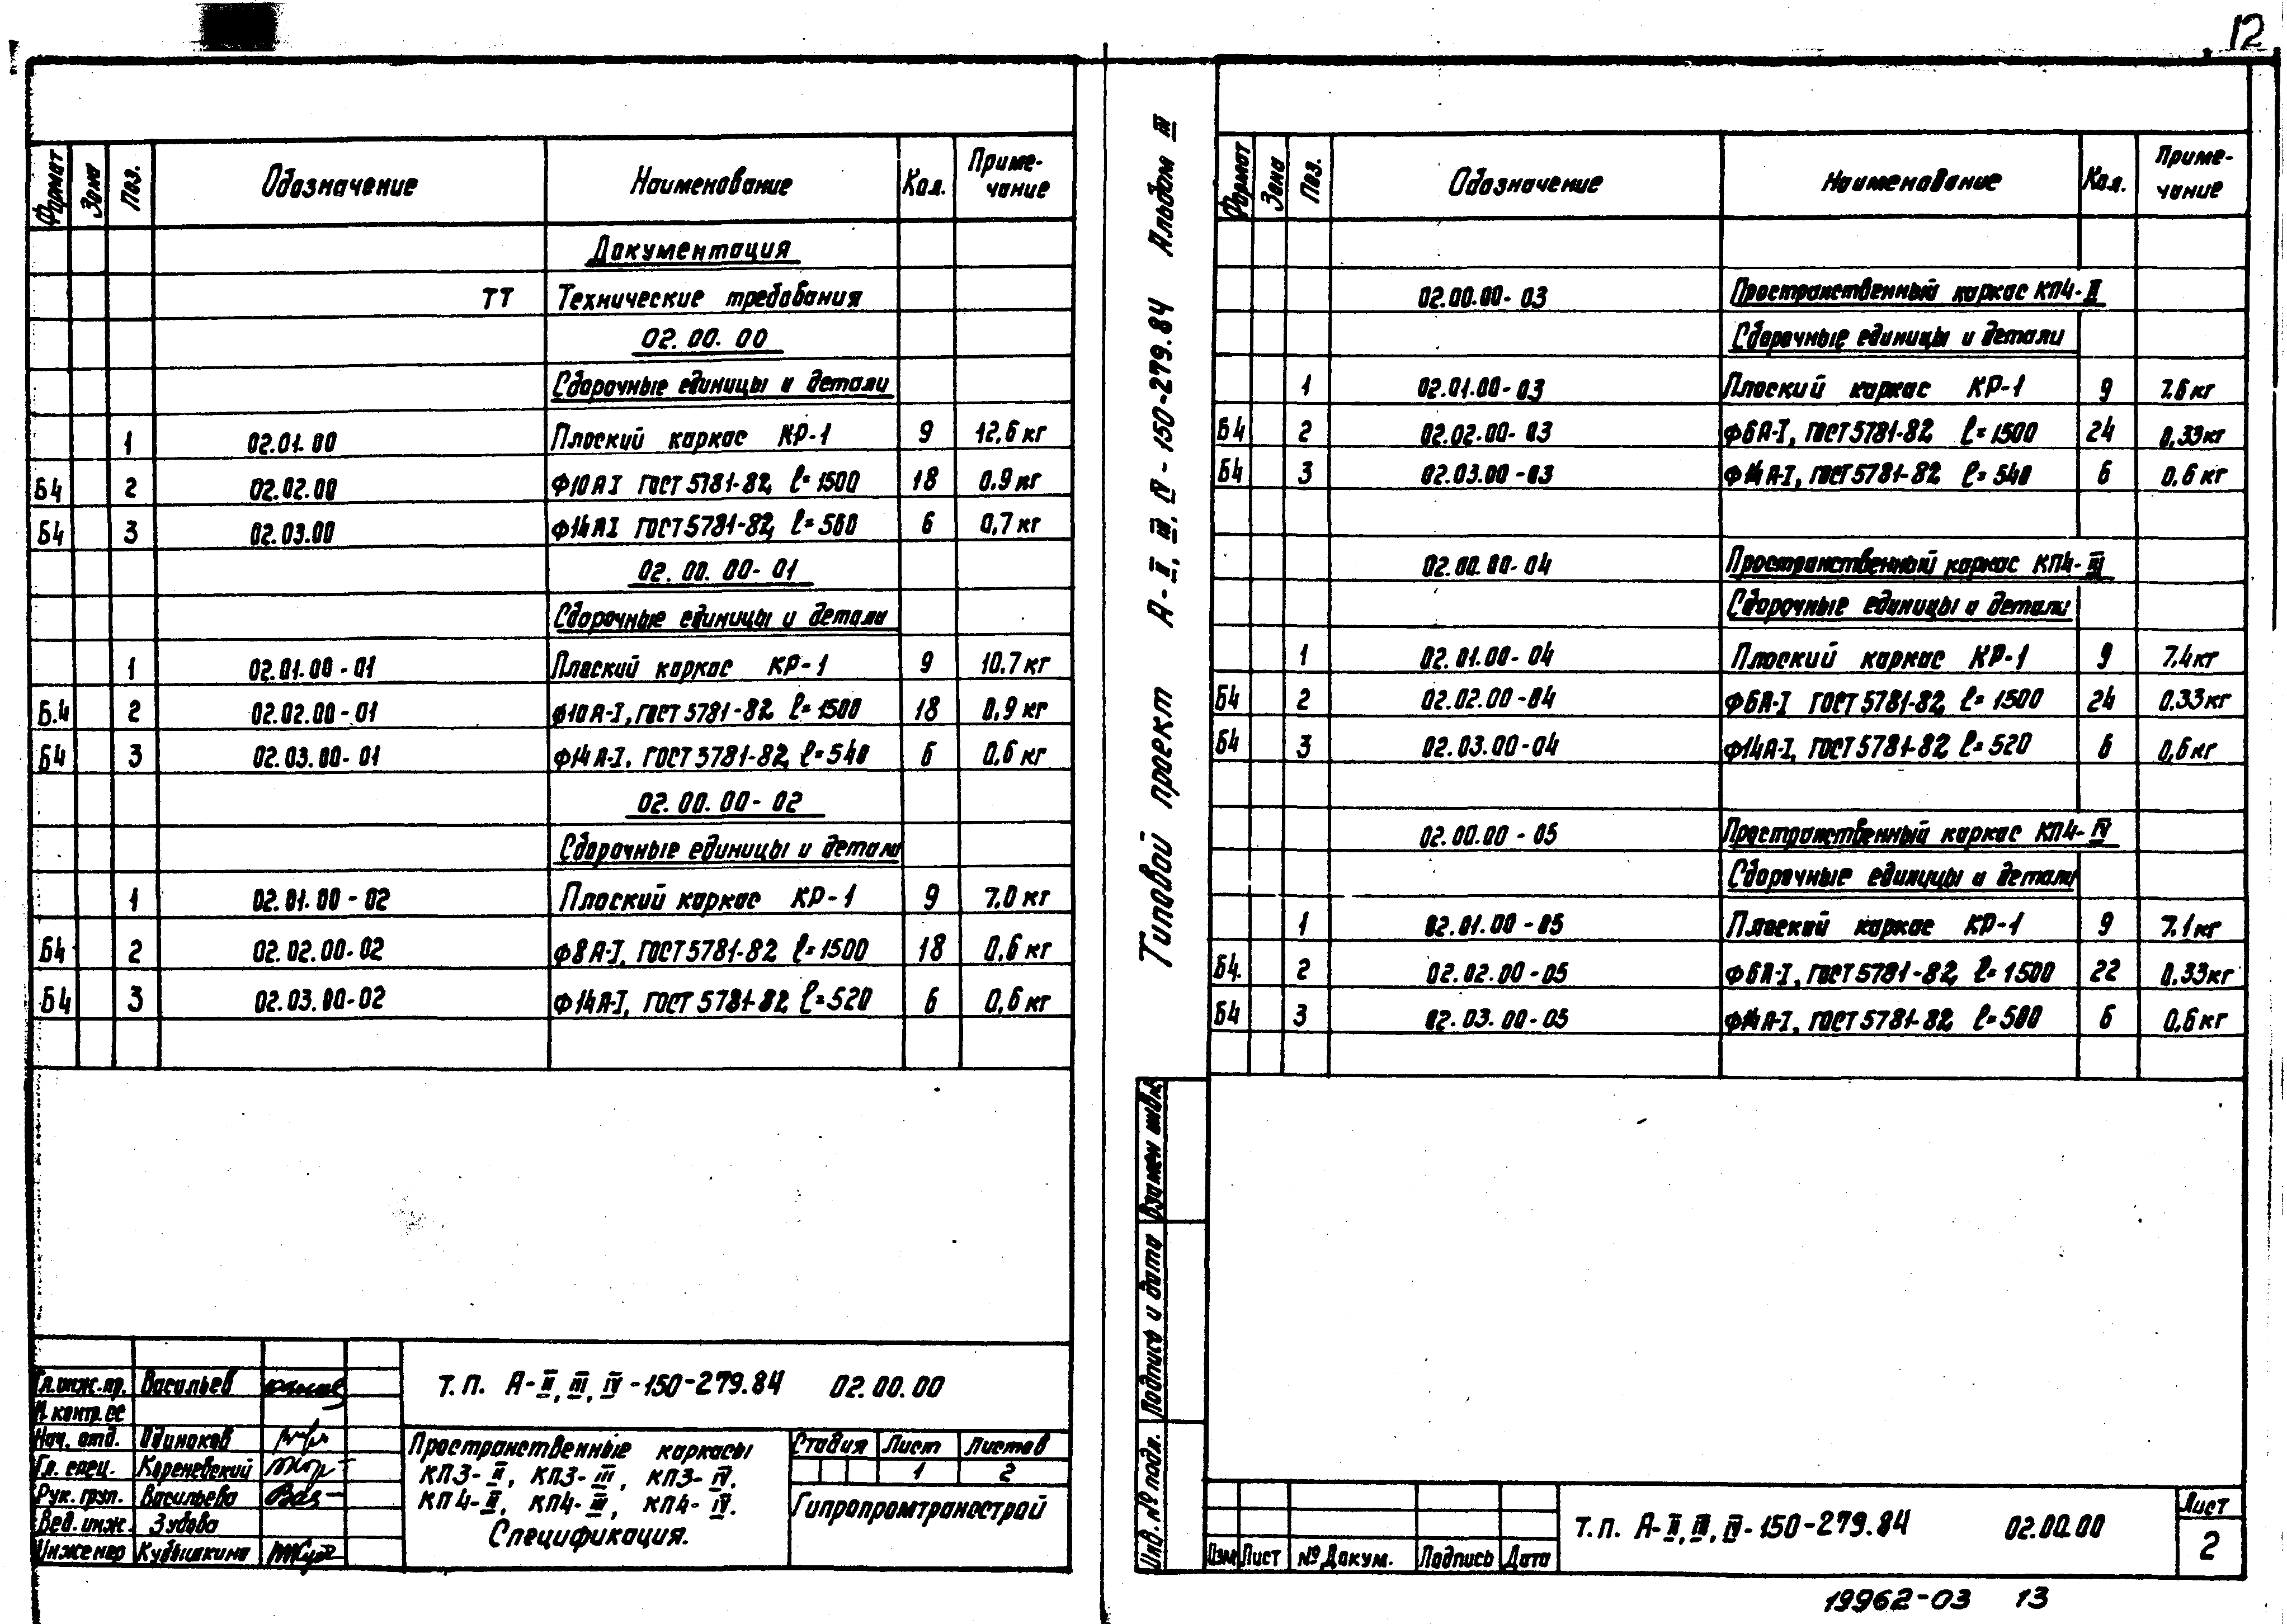 12
Формат Зона Поз. Обозначение Наименование Кол. Приме-
чание
Документация
ТТ Технические требования
02.00.00
Сборочные единицы и детали
1 02.01.00 Плоский каркас КР-1 9 12,6 кг
Б4 2 02.02.00 Ф10 А I ГОСТ 5781-82, ℓ=1500 18 0.9 кг
Б4 3 02.03.00 Ф14 А I ГОСТ 5781-82, ℓ=560 6 0,7 кг
02.00.00-01
Сборочные единицы и детали
1 02.01.00-01 Плоский каркас КР-1 9 10.7 кг
Б.4 2 02.02.00-01 Ф10 А-I, ГОСТ 5781-82 ℓ=1500 18 0,9 кг
Б4 3 02.03.00-01 Ф14 А-I, ГОСТ 5781-82, ℓ=540 6 0,6 кг
02.00.00-02
Сборочные единицы и детали
1 02.01.00-02 Плоский каркас КР-1 9 7.0 кг
Б4 2 02.02.00-02 Ф8 А-I, ГОСТ 5781-82 ℓ=1500 18 0,6 кг
Б4 3 02.03.00-02 Ф14 А-I, ГОСТ 5781-82 ℓ=520 6 0,6 кг
Гл.инж.пр. Васильев
Н. контр.
Нач. отд. Одиноков
Гл. спец. Кореневский
Рук. груп. Васильева
Вед. инж. Зубова
Инженер Кубышкина
Т.П. А-II, III, IV-150-279.84 02.00.00
Пространственные каркасы
КП3-II, КП3-III, КП3-IV,
КП4-II, КП4-III, КП4-IV.
Спецификация.
Стадия Лист Листов
1 2
Гипропромтрансстрой
Типовой проект А-II, III, IV-150-279.84 Альбом III
Инв. № подл. Подпись и дата Взамен инв.№
Формат Зона Поз. Обозначение Наименование Кол. Приме-
чание
02.00.00-03 Пространственный каркас КП4-II
Сборочные единицы и детали
1 02.01.00-03 Плоский каркас КР-1 9 7.6 кг
Б4 2 02.02.00-03 Ф6 А-I, ГОСТ 5781-82 ℓ=1500 24 0,33 кг
Б4 3 02.03.00-03 Ф14 А-I, ГОСТ 5781-82 ℓ=540 6 0,6 кг
02.00.00-04 Пространственный каркас КП4-III
Сборочные единицы и детали
1 02.01.00-04 Плоский каркас КР-1 9 7,4 кг
Б4 2 02.02.00-04 Ф6А-I ГОСТ 5781-82, ℓ=1500 24 0.33 кг
Б4 3 02.03.00-04 Ф14А-I, ГОСТ 5781-82 ℓ=520 6 0,6 кг
02.00.00-05 Пространственный каркас КП4-IV
Сборочные единицы и детали
1 02.01.00-05 Плоский каркас КР-1 9 7.1 кг
Б4 2 02.02.00-05 Ф6А-I, ГОСТ 5781-82, ℓ=1500 22 0,33 кг
Б4 3 02.03.00-05 Ф14 А-I, ГОСТ 5781-82, ℓ=500 6 0,6 кг
Изм Лист № Докум. Подпись Дата
Т.П. А-II, III, IV-150-279.84 02.00.00
Лист
2
19962-03 13